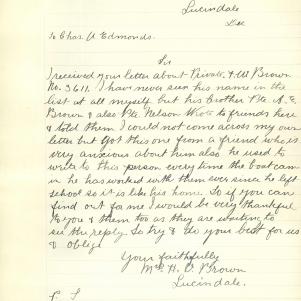 Lucindale
Dec
To Chas. A Edmonds.
Sir
I received your letter about Private. E. W Brown
No. 3611. I have never seen his name in the
list at all myself but his brother Pte. A. E.
Brown & also Pte. Nelson Wrote to friends here
& told them I could not come across my own
letter but got this one from a friend who is
very anxious about him also he used to
write to this person every time the boat cam
in he has worked with them ever since he left
school so it is like his home. So if you can
find out for me I would be very thankful
to you & them too as they are wanting to
see the reply. So try & do your best for us
& oblige
Yours faithfully
Mrs H. V. Brown
Lucindale.